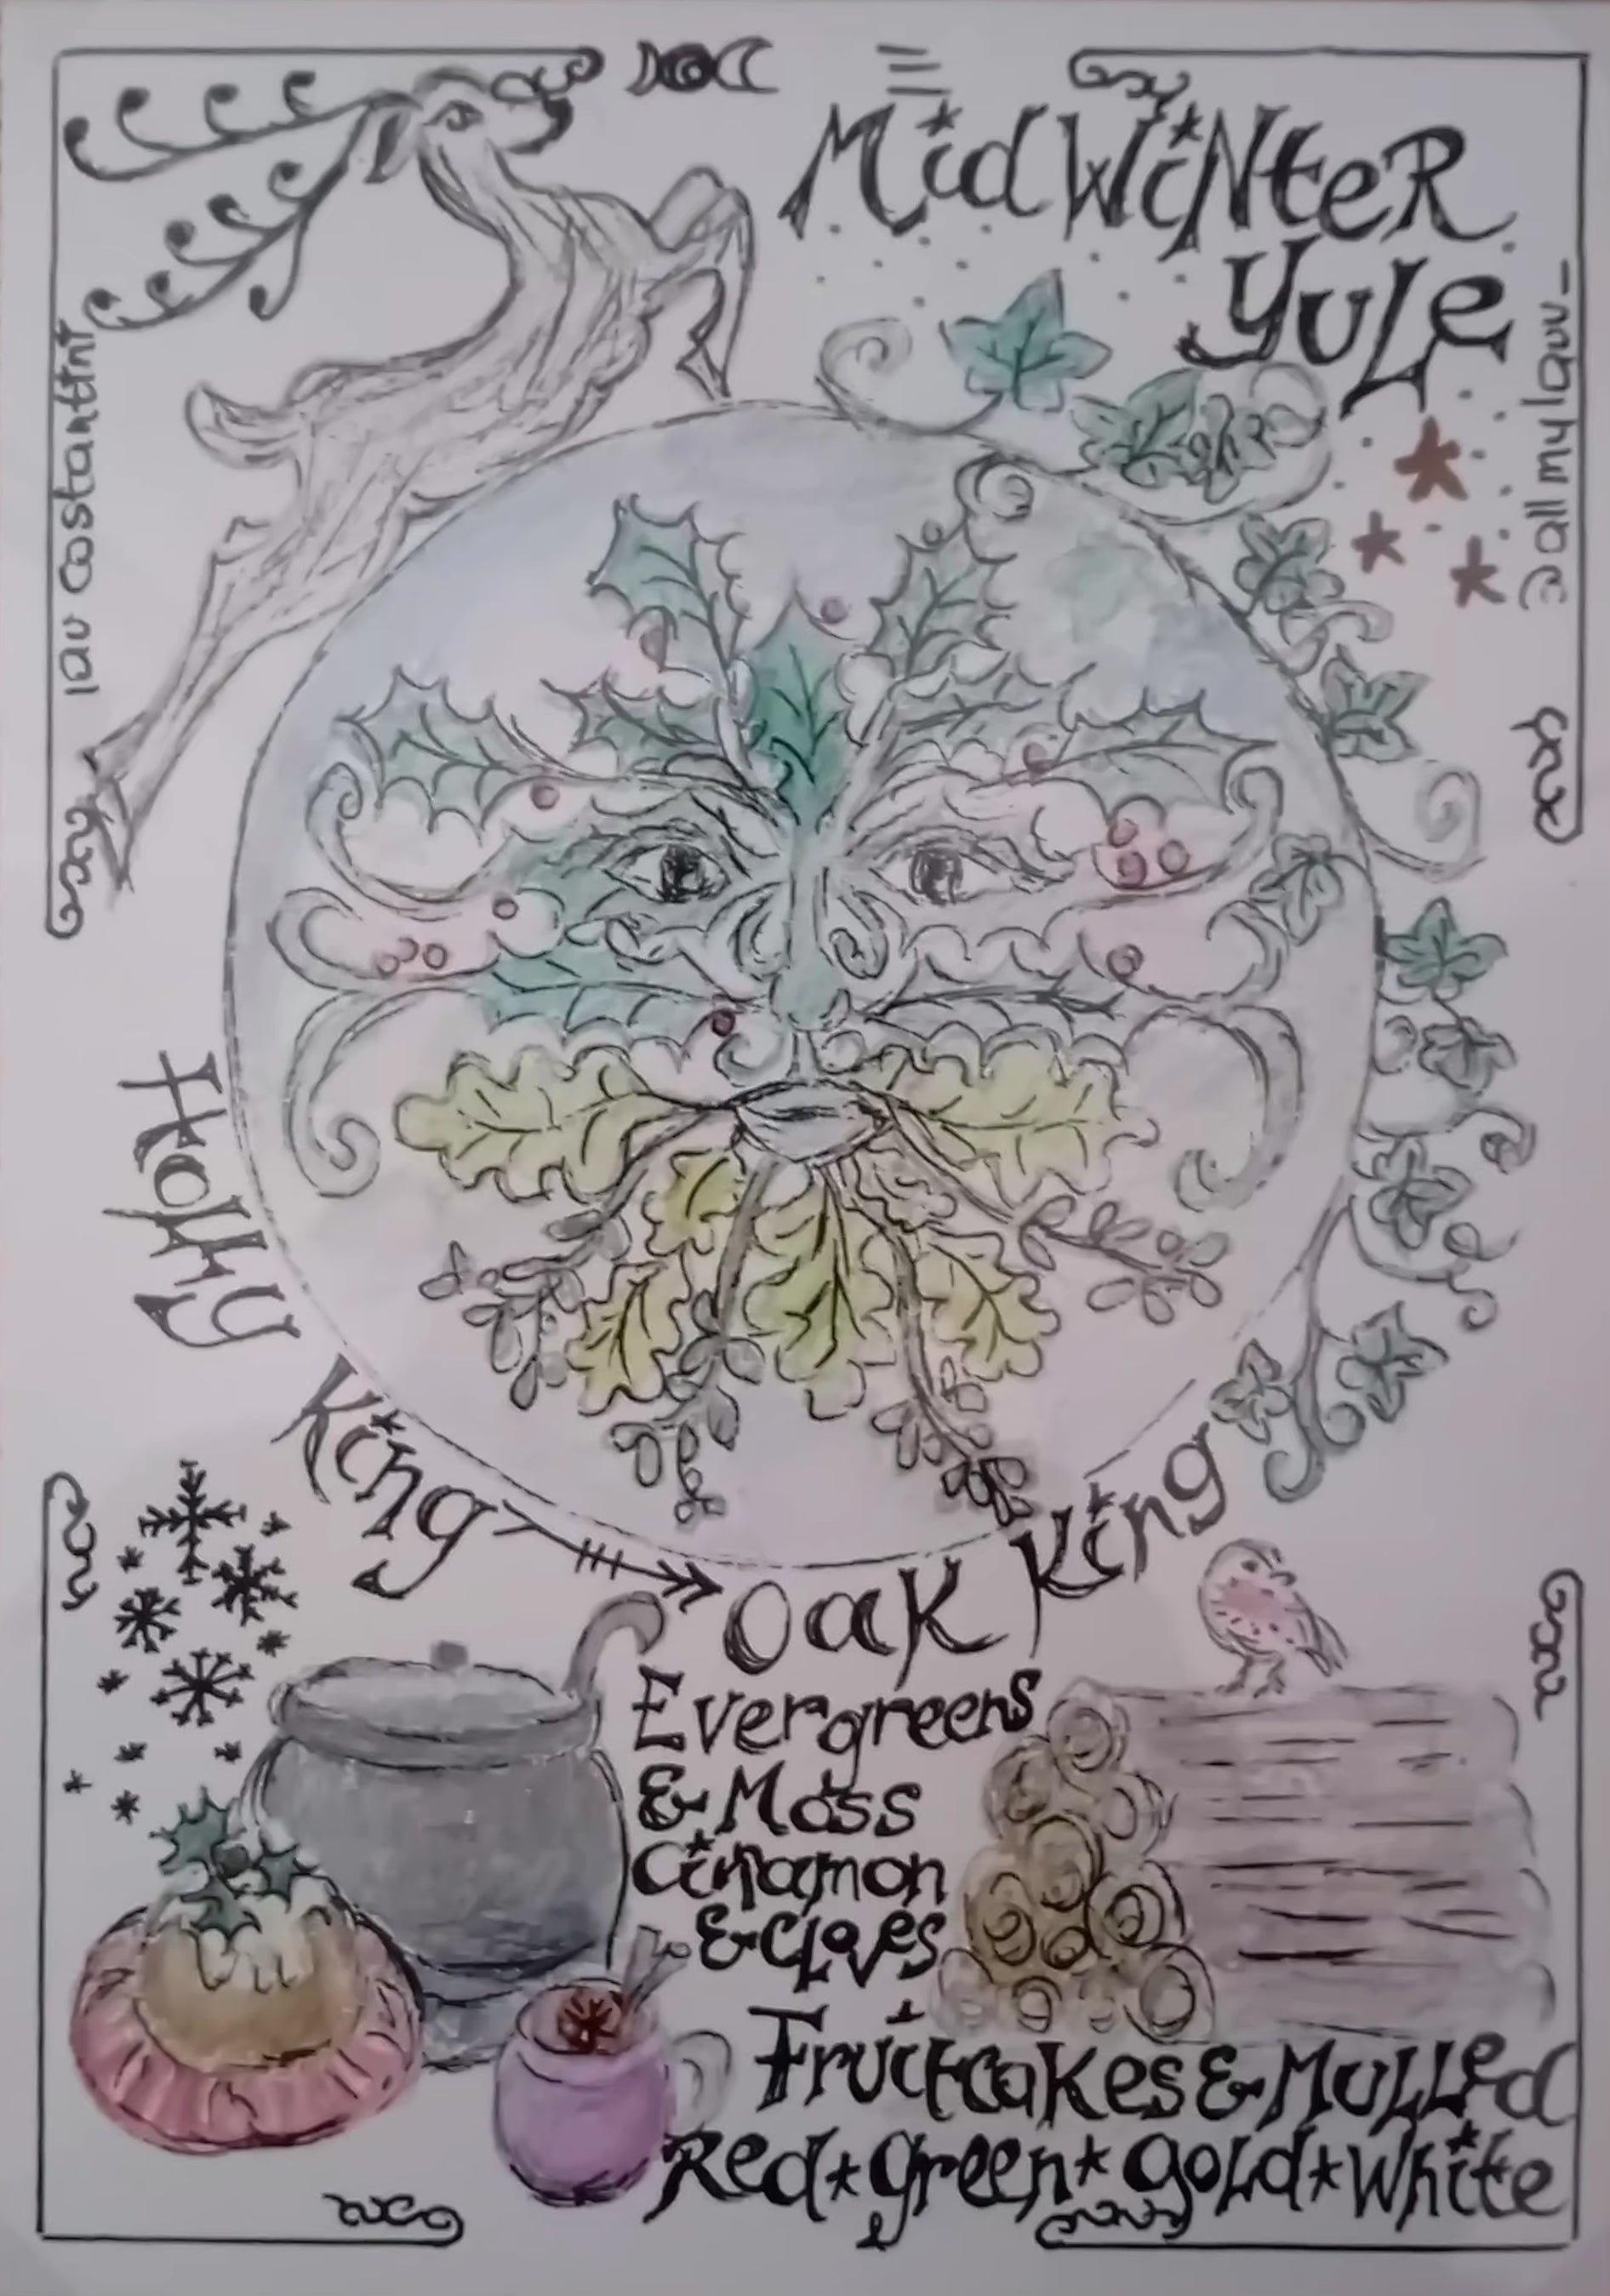 MidWiNteR
YuLe
lau costantini
@allmylauu_
Holly King
Oak King
Evergreens
& Moss
Cinnamon
& Cloves
Fruitcakes & Mulled
Red * green * gold * white